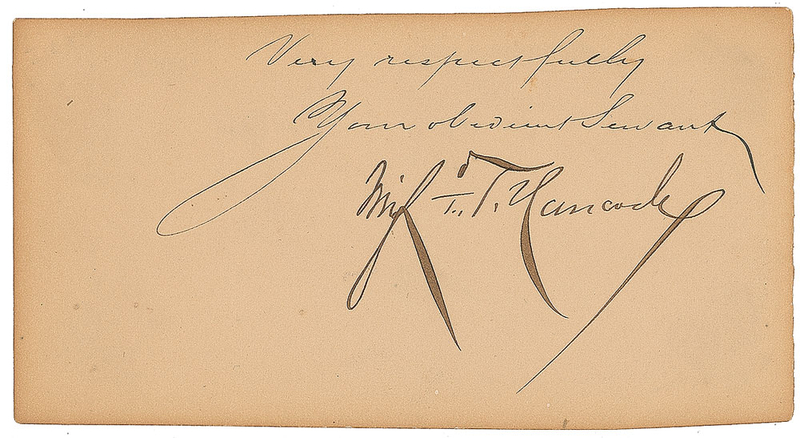 Very respectfully
Your obedient Servant
Winfd S. Hancock